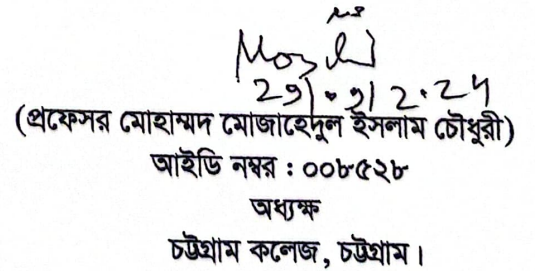 (প্রফেসর মোহাম্মদ মোজাহেদুল ইসলাম চৌধুরী)
আইডি নম্বর : ০০৮৫২৮
অধ্যক্ষ
চট্টগ্রাম কলেজ, চট্টগ্রাম।